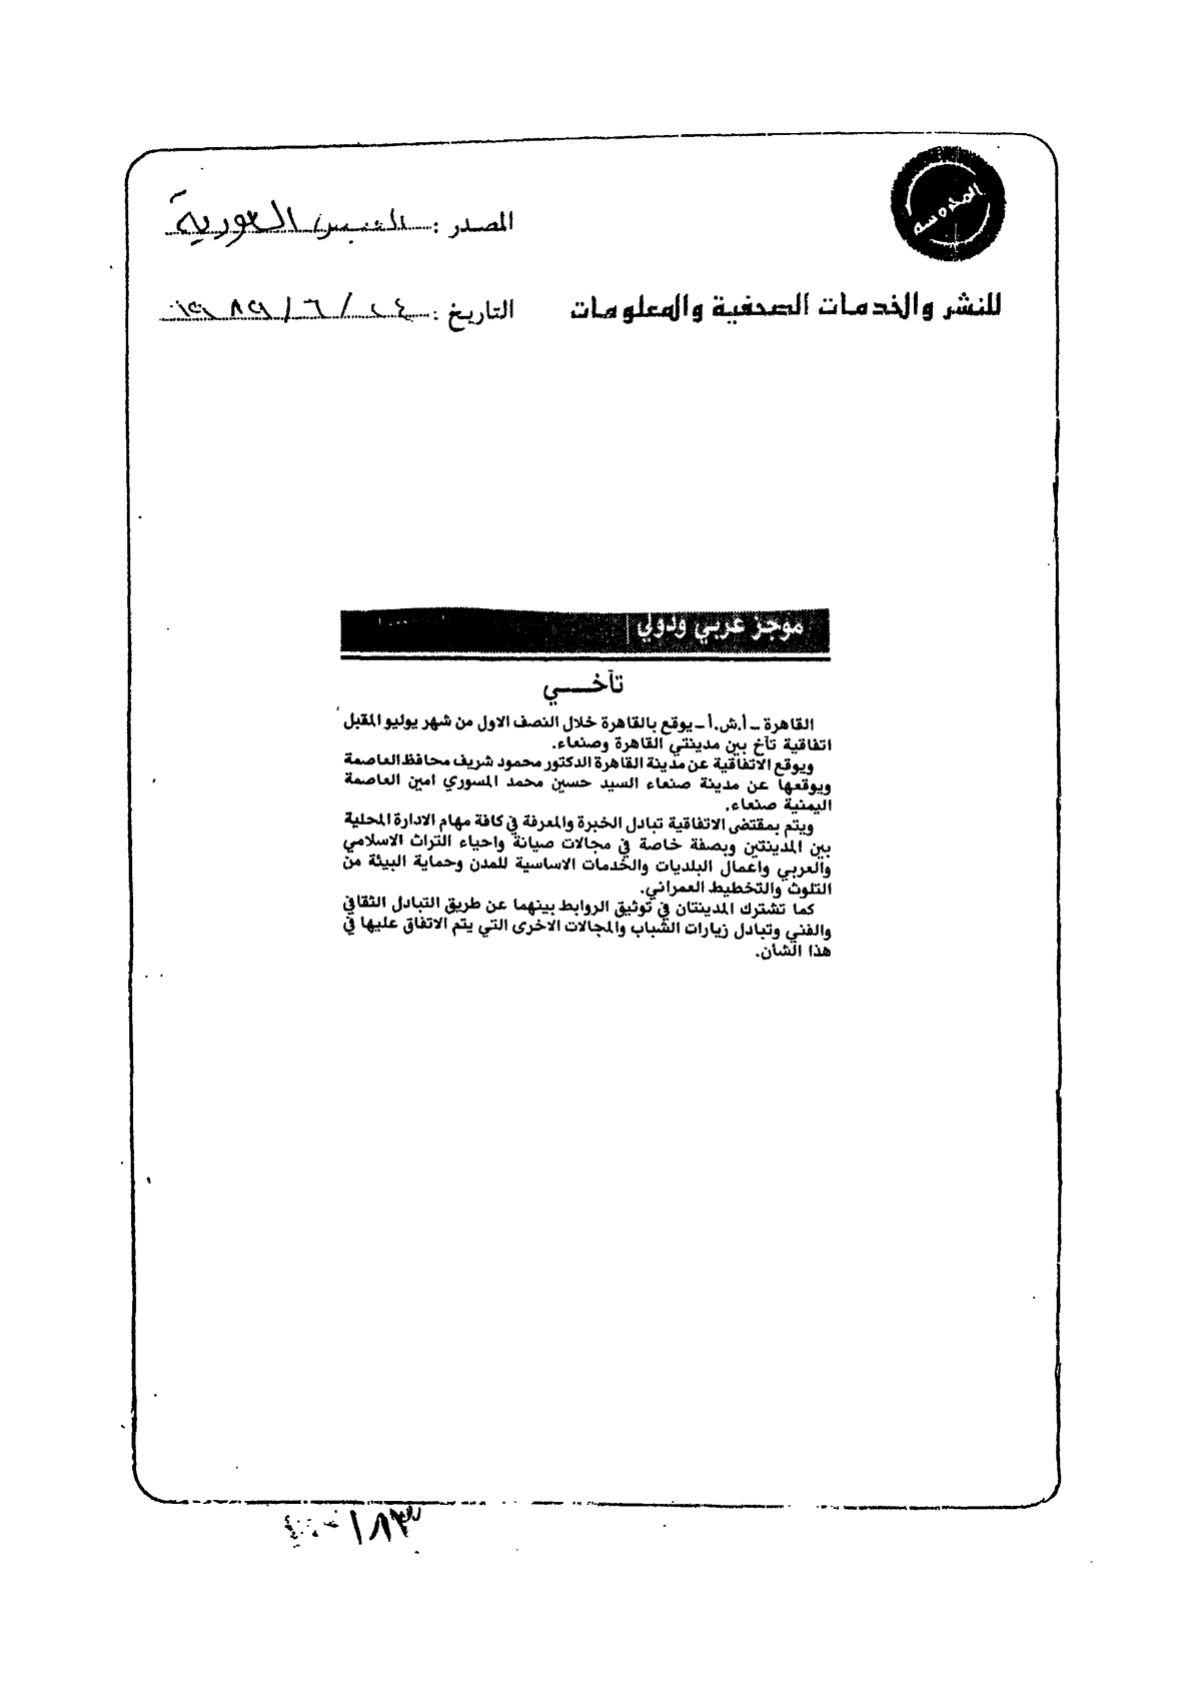 المحروسة
المصدر : القبس السعودية
للنشر والخدمات الصحفية والمعلومات
التاريخ : ٢٤ / ٦ / ١٩٨٩
موجز عربي ودولي
تآخــــي
القاهرة ـ أ.ش.أ ـ يوقع بالقاهرة خلال النصف الاول من شهر يوليو المقبل
اتفاقية تآخ بين مدينتي القاهرة وصنعاء.
ويوقع الاتفاقية عن مدينة القاهرة الدكتور محمود شريف محافظ العاصمة
ويوقعها عن مدينة صنعاء السيد حسين محمد المسوري امين العاصمة
اليمنية صنعاء.
ويتم بمقتضى الاتفاقية تبادل الخبرة والمعرفة في كافة مهام الادارة المحلية
بين المدينتين وبصفة خاصة في مجالات صيانة واحياء التراث الاسلامي
والعربي واعمال البلديات والخدمات الاساسية للمدن وحماية البيئة من
التلوث والتخطيط العمراني.
كما تشترك المدينتان في توثيق الروابط بينهما عن طريق التبادل الثقافي
والفني وتبادل زيارات الشباب والمجالات الاخرى التي يتم الاتفاق عليها في
هذا الشأن.
١٨٣